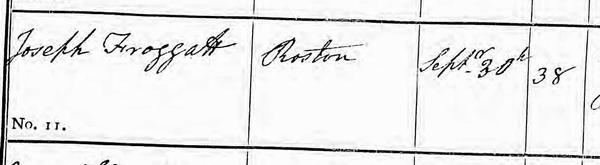 Joseph Froggatt Roston Septr. 30th 38
No. 11.